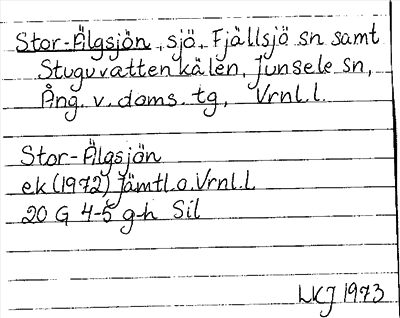 Stor-Älgsjön, sjö, Fjällsjö sn samt
Stuguvattenkälen, Junsele sn,
Ång. v. doms. tg, Vrnl.l.
Stor-Älgsjön
ek (1972) Jämtl.o.Vrnl.l.
20 G 4-5 g-h Sil
LKJ 1973